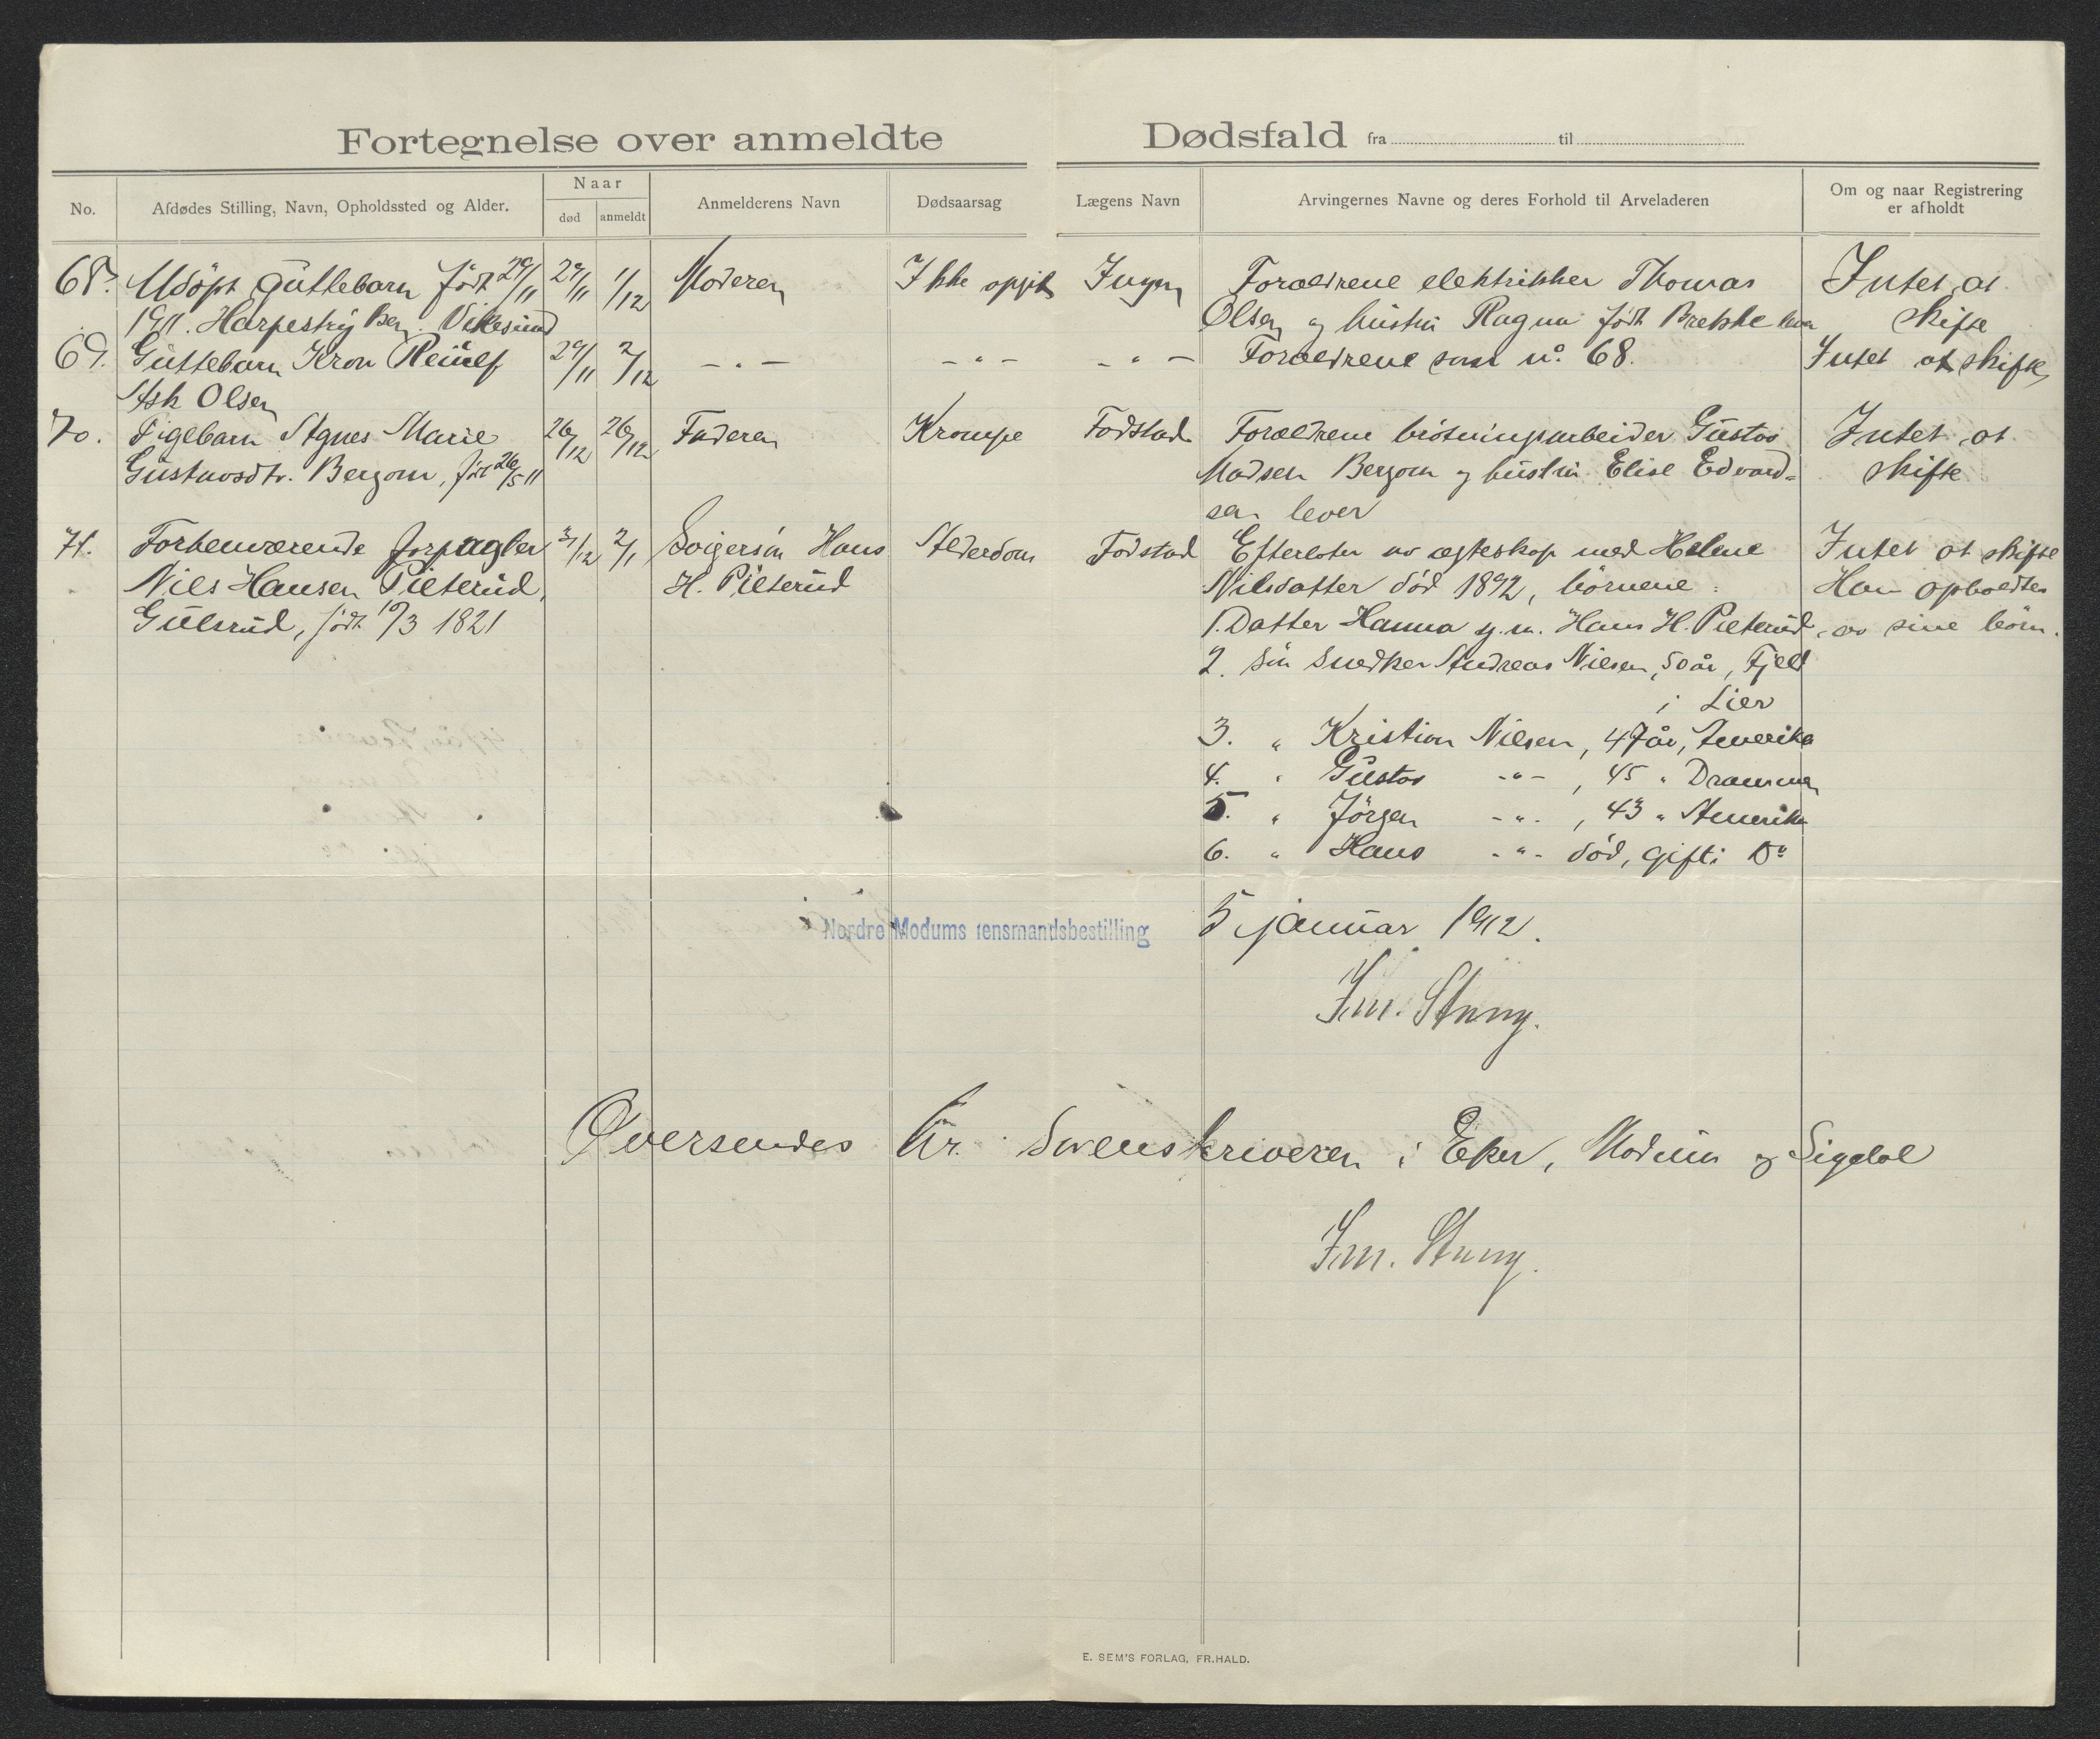 Fortegnelse over anmeldte Dødsfald fra til
No.
Afdødes Stilling, Navn, Opholdssted og Alder.
Naar
død anmeldt
Anmelderens Navn
Dødsaarsag
Lægens Navn
Arvingernes Navne og deres Forhold til Arveladeren
Om og naar Registrering
er afholdt
68. Udöpt guttebarn født 29/11 29/11 1/12 Moderen Ikke opgit Ingen Forældrene elektrikker Thomas Intet at
1911. Harpestry Vikesund Olsen og hustru Ragna født Brekke lever skifte
69. Guttebarn Reiulf 29/11 2/12 - " - - " - - " - Forældrene som no. 68. Intet at skifte
Ask Olsen
70. Pigebarn Agnes Marie 26/12 26/12 Faderen Krampe Fodstad Forældrene brøtningsarbeider Gustav Intet at
Gustavsdtr. Bergom, født 26/5 11 Madsen Bergom og hustru Elise Edvard= skifte
sen lever
71. Forhenværende forpagter 31/12 2/1 Svigersøn Hans Alderdom Fodstad Efterlater av egteskap med Helene Intet at skifte
Nils Hansen Pilterud, H. Pilterud Nilsdatter død 1892, børnene: Han opholdtes
Gulsrud, født 10/3 1821 1. Datter Hanna g. m. Hans H. Pilterud av sine børn.
2. Søn Snedker Andreas Nilsen, 50 år, Fjell
i Lier
3. " Kristian Nilsen, 47 år, Amerika
4. " Gustav - " - , 45 " Drammen
5. " Jørgen - " - , 43 " Amerika
6. " Hans - " - død, gift i Do
Nordre Modums lensmandsbestilling 5 januar 1912.
Im. Strøm.
Oversendes hr. Sorenskriveren i Eker, Modum og Sigdal
Im. Strøm.
E. SEM'S FORLAG, FR.HALD.